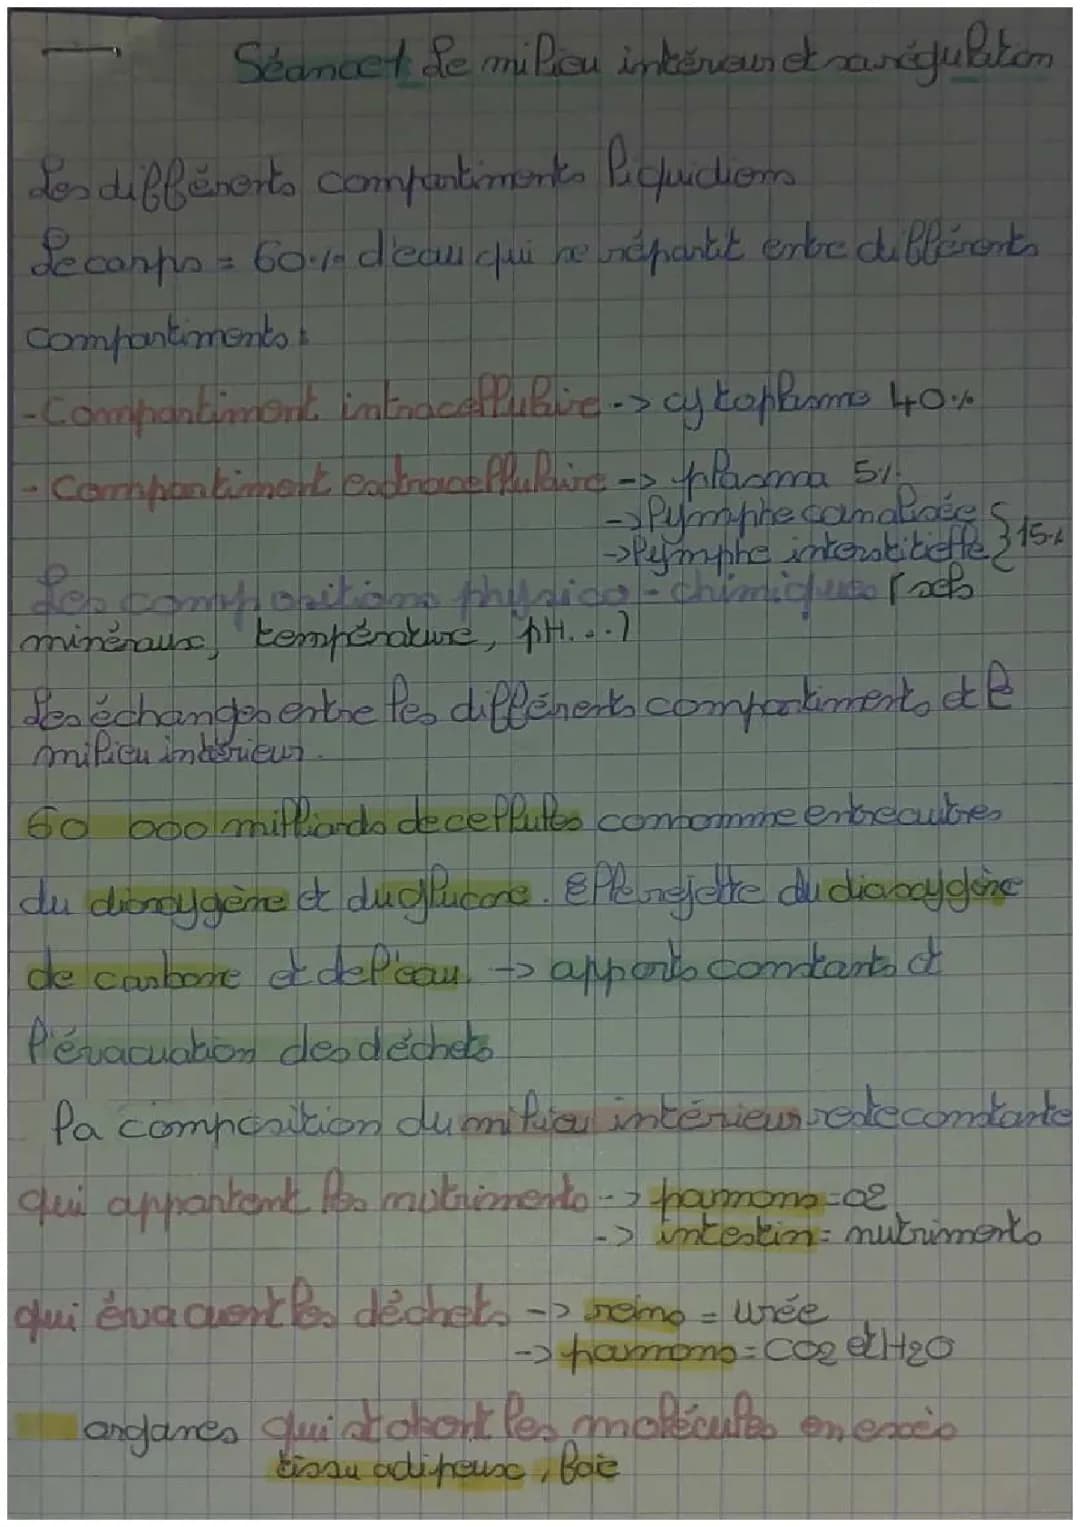 Séance 1 Le milieu intérieur et sa régulation
Les différents compartiments liquidiens
Le corps = 60% d'eau qui se répartit entre différents
compartiments :
- Compartiment intracellulaire -> cytoplasme 40%
- Compartiment extracellulaire -> plasma 5%
-> lymphe canalisée
-> lymphe interstitielle } 15%
Les compositions physico-chimiques (sels
minéraux, température, pH...)
Les échanges entre les différents compartiments et le
milieu intérieur.
60 000 milliards de cellules consomme entre autres
du dioxygène et du glucose. Elle rejette du dioxygène
de carbone et de l'eau -> apports constants et
l'évacuation des déchets
la composition du milieu intérieur reste constante
qui apportent les nutriments -> poumons = O2
-> intestin = nutriments
qui évacuent les déchets -> reins = urée
-> poumons = CO2 et H2O
organes qui stockent les molécules en excès
tissu adipeux, foie